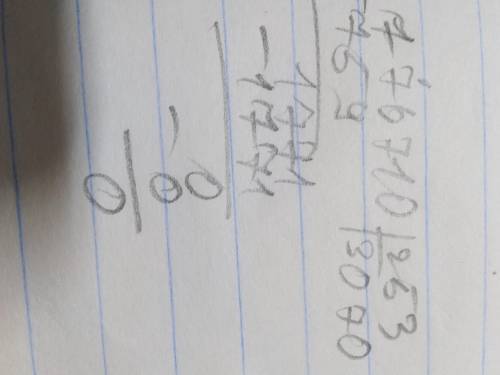 776710|253
-759 |3070
1771
-1771
0
-0
0